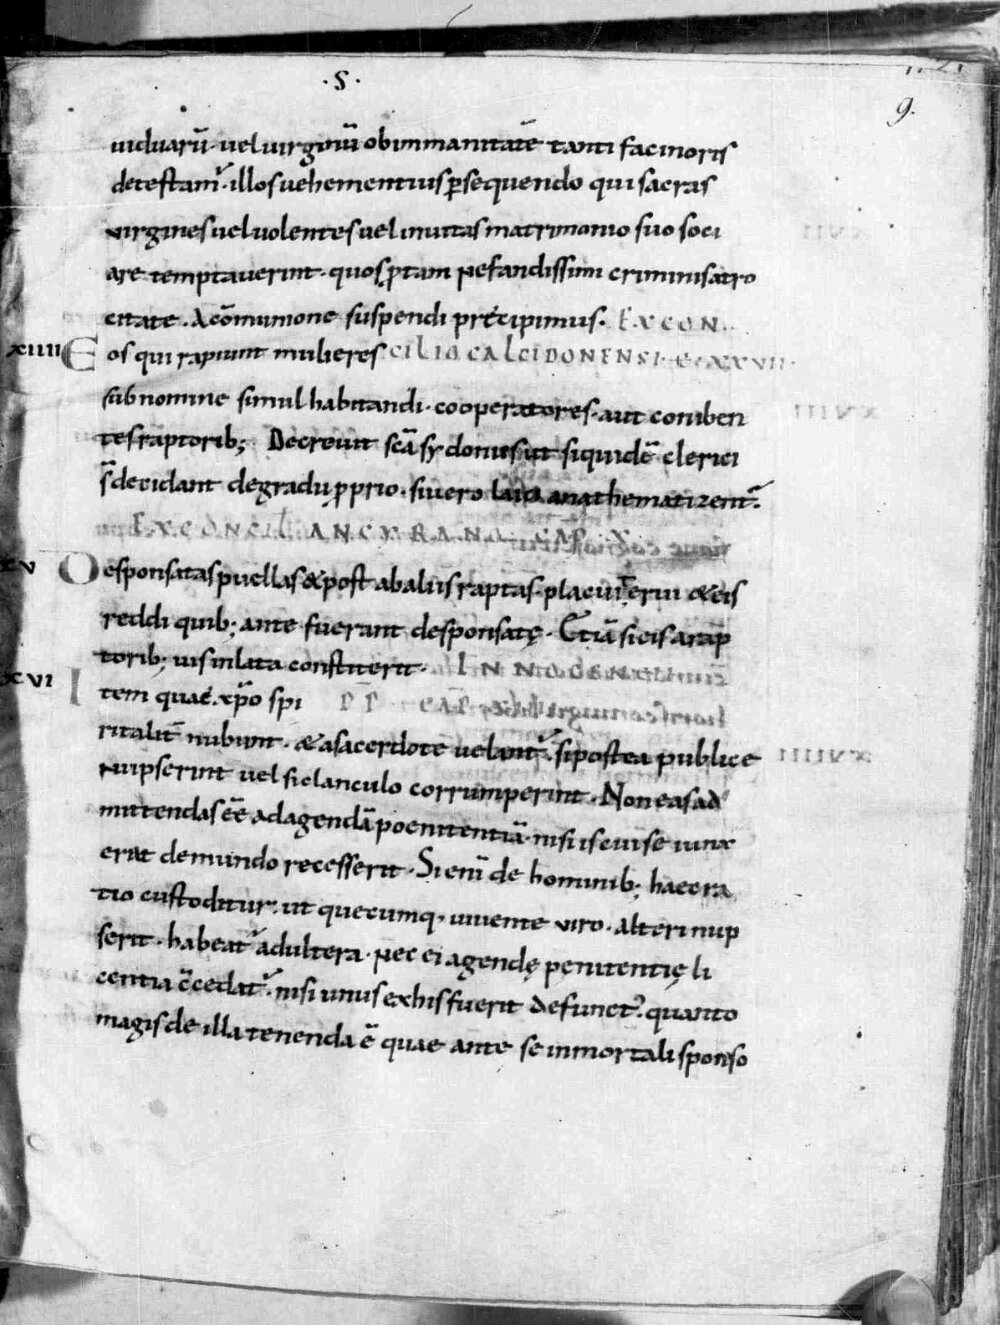 ·S·
9.
uiduarū· uel uirginū ob inmanitatē tanti facinoris
detestam̄· illos uehementius ꝑsequendo qui sacras
uirgines uel uolentes uel inuitas matrimonio suo soci
are temptauerint· quos ꝓ tam nefandissimi criminis atro
citate· A cōmunione suspendi pręcipimus· EX CON
XIIII Eos qui rapiunt mulieres CILIO CALCIDONENSI· C· XXVII·
sub nomine simul habitandi· cooperatores· aut coniben
tes raptorib; Decreuit scā synodus ut siquidē clerici
s̄ decidant de gradu ꝓprio· si uero laici anathematizent̄·
EX CONCIL ANCYRANO CAP X
XV Desponsatas puellas & post ab aliis raptas· placuit erui & eis
reddi quib; ante fuerant desponsatę· Etiā si eis a rap
torib; uis inlata constiterit· INNOCENTIUS
XVI Item quae xp̄o spi PP CAP
ritalit̄ nubunt· & a sacerdote uelant̄· si postea publice
nupserint uel si clanculo corrumperint· Non eas ad
mittendas eē̄ ad agendā poenitentiā· nisi is cui se iunx
erat de mundo recesserit· Si enī de hominib; haec ra
tio custoditur· ut quecumq· uiuente uiro· alteri nup
serit· habeat̄ adultera· nec ei agendę penitentię li
centia c̄cedat̄· nisi unus ex his fuerit defunct᾽· quanto
magis de illa tenenda ē̄ quae ante se inmortali sponso